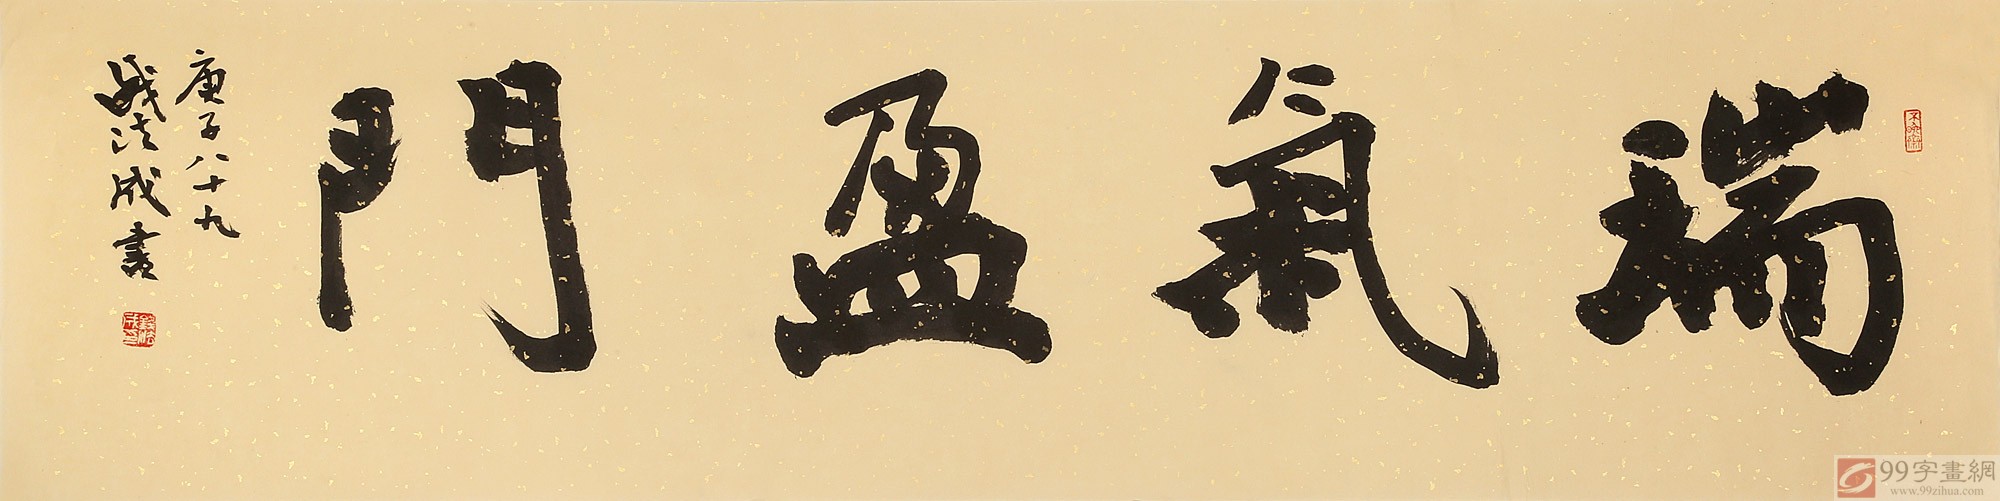 瑞氣盈門
庚子八十九
战法成書
99字畫網
www.99zihua.com